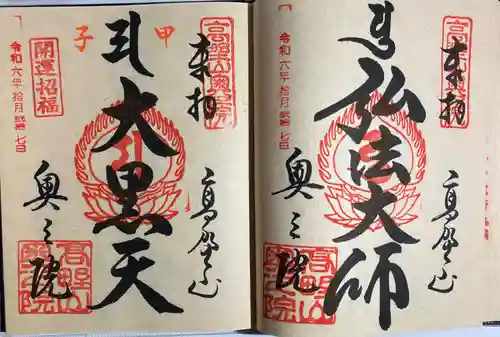 高野山奥之院
奉拝
弘法大師
高野山
奥之院
令和六年拾月弐拾七日
高野山奥之院
甲
子
奉拝
大黒天
高野山
開運招福
奥之院
令和六年拾月弐拾七日
高野山奥之院